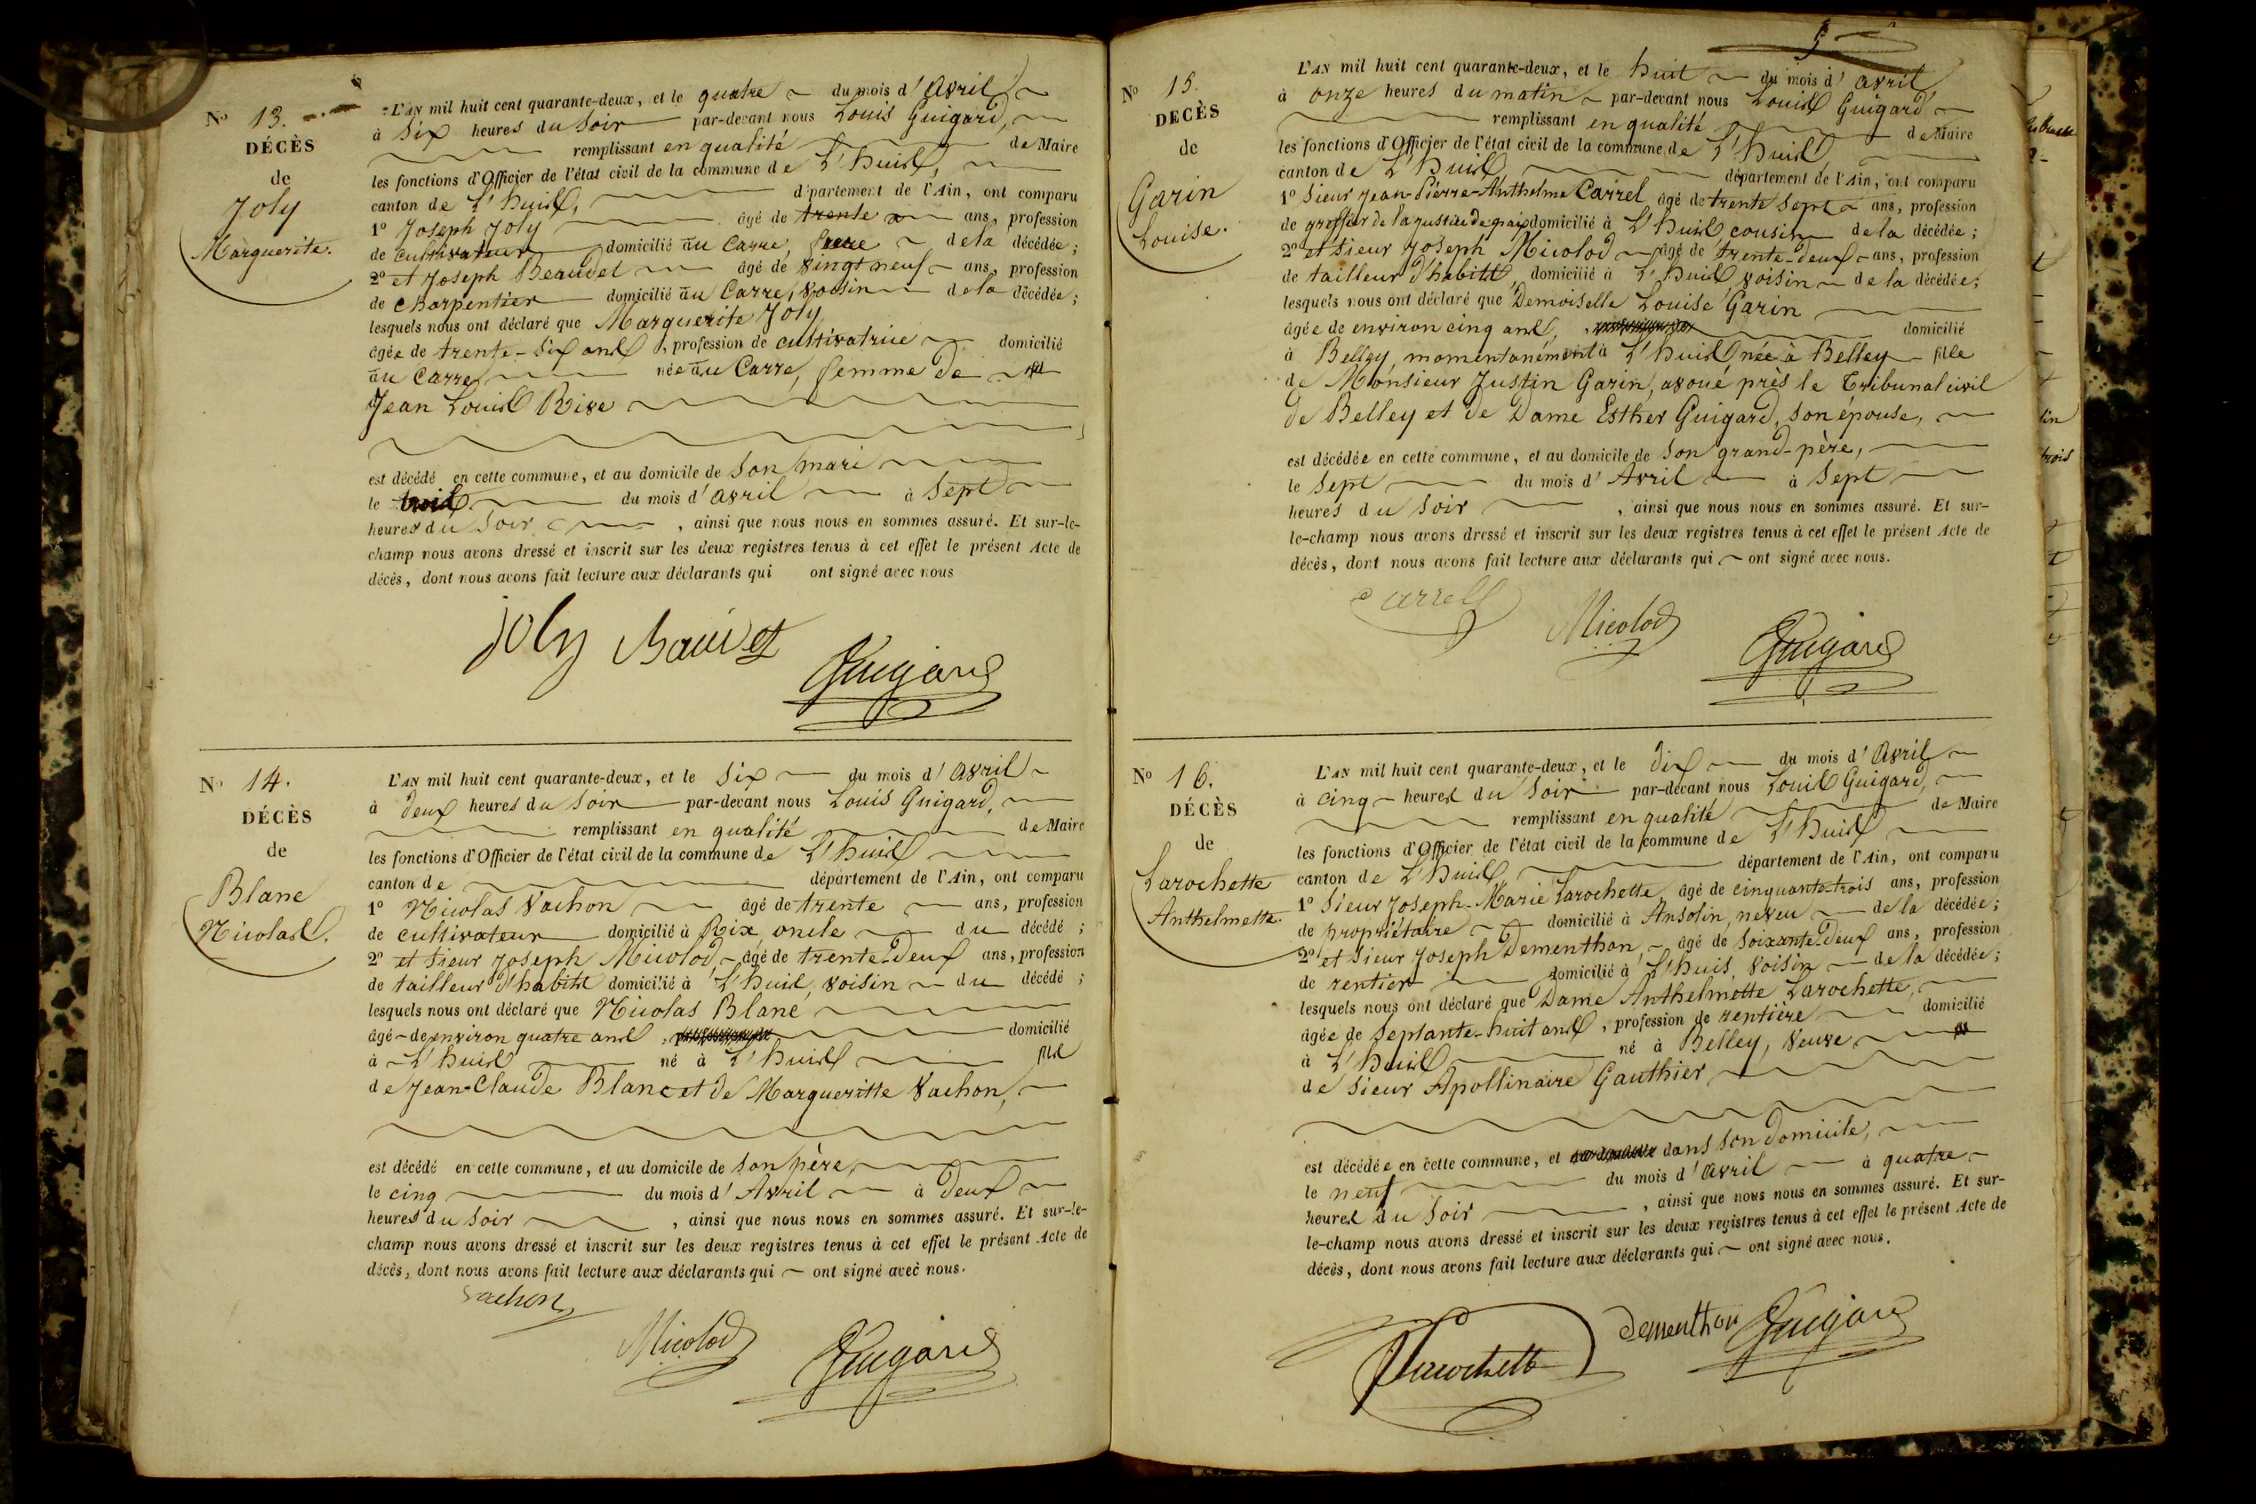 N° 13.
DÉCÈS
de
Joly
Marguerite.
L'AN mil huit cent quarante-deux, et le quatre du mois d'Avril
à Six heures du Soir par-devant nous Louis Guigard,
remplissant en qualité de Maire
les fonctions d'Officier de l'état civil de la commune de L'huis,
canton de L'huis, département de l'Ain, ont comparu
1° Joseph Joly âgé de trente ans, profession
de cultivateur domicilié au Carre, frere de la décédée;
2° et Joseph Beaudet âgé de vingt neuf ans, profession
de charpentier domicilié au Carre, voisin de la décédée;
lesquels nous ont déclaré que Marguerite Joly
âgée de trente-six ans, profession de cultivatrice domicilié
au Carre née au Carre, femme de
Jean Louis Rive
est décédé en cette commune, et au domicile de Son mari
le trois du mois d'avril à Sept
heures du Soir, ainsi que nous nous en sommes assuré. Et sur-le-
champ nous avons dressé et inscrit sur les deux registres tenus à cet effet le présent Acte de
décès, dont nous avons fait lecture aux déclarants qui ont signé avec nous
joly Guigard
N° 14.
DÉCÈS
de
Blanc
Nicolas.
L'AN mil huit cent quarante-deux, et le Six du mois d'Avril
à deux heures du Soir par-devant nous Louis Guigard,
remplissant en qualité de Maire
les fonctions d'Officier de l'état civil de la commune de L'huis
canton de département de l'Ain, ont comparu
1° Nicolas Vachon âgé de trente ans, profession
de cultivateur domicilié à Rix oncle du décédé;
2° et Sieur Joseph Micolod âgé de trente-deux ans, profession
de tailleur d'habits domicilié à L'huis, voisin du décédé;
lesquels nous ont déclaré que Nicolas Blanc,
âgé de environ quatre ans, domicilié
à L'huis né à L'huis fils
de Jean-Claude Blanc et de Margueritte Vachon,
est décédé en cette commune, et au domicile de Son père,
le cinq du mois d'Avril à deux
heures du Soir, ainsi que nous nous en sommes assuré. Et sur-le-
champ nous avons dressé et inscrit sur les deux registres tenus à cet effet le présent Acte de
décès, dont nous avons fait lecture aux déclarants qui ont signé avec nous.
Vachon
Micolod Guigard
N° 15.
DÉCÈS
de
Garin
Louise.
L'AN mil huit cent quarante-deux, et le huit du mois d'avril
à onze heures du matin par-devant nous Louis Guigard
remplissant en qualité de Maire
les fonctions d'Officier de l'état civil de la commune de L'huis,
canton de L'huis, département de l'Ain, ont comparu
1° Sieur Jean-Pierre-Anthelme Carrel âgé de trente sept ans, profession
de greffier de la justice de paix domicilié à L'huis cousin de la décédée;
2° et Sieur Joseph Micolod âgé de trente-deux ans, profession
de tailleur d'habits, domicilié à L'huis, voisin de la décédée;
lesquels nous ont déclaré que Demoiselle Louise Garin
âgée de environ cinq ans, domicilié
à Belley momentanément à L'huis née à Belley fille
de Monsieur Justin Garin, avoué près le Tribunal civil
de Belley et de Dame Esther Guigard, son épouse,
est décédée en cette commune, et au domicile de Son grand-père,
le Sept du mois d'Avril à Sept
heures du Soir, ainsi que nous nous en sommes assuré. Et sur-
le-champ nous avons dressé et inscrit sur les deux registres tenus à cet effet le présent Acte de
décès, dont nous avons fait lecture aux déclarants qui ont signé avec nous.
Carrel
Micolod
Guigard
N° 16.
DÉCÈS
de
Larochette
Anthelmette.
L'AN mil huit cent quarante-deux, et le dix du mois d'Avril
à cinq heures du Soir par-devant nous Louis Guigard,
remplissant en qualité de Maire
les fonctions d'Officier de l'état civil de la commune de L'huis
canton de L'huis, département de l'Ain, ont comparu
1° Sieur Joseph-Marie Larochette âgé de cinquante-trois ans, profession
de propriétaire domicilié à Ansolin, neveu de la décédée;
2° et Sieur Joseph Dementhon, âgé de Soixante-deux ans, profession
de rentier domicilié à L'huis, voisin de la décédée;
lesquels nous ont déclaré que Dame Anthelmette Larochette,
âgée de Septante-huit ans, profession de rentière domicilié
à L'huis né à Belley, veuve
de Sieur Apollinaire Gauthier
est décédée en cette commune, et dans son domicile,
le neuf du mois d'avril à quatre
heures du Soir, ainsi que nous nous en sommes assuré. Et sur-
le-champ nous avons dressé et inscrit sur les deux registres tenus à cet effet le présent Acte de
décès, dont nous avons fait lecture aux déclarants qui ont signé avec nous.
Larochette Dementhon Guigard